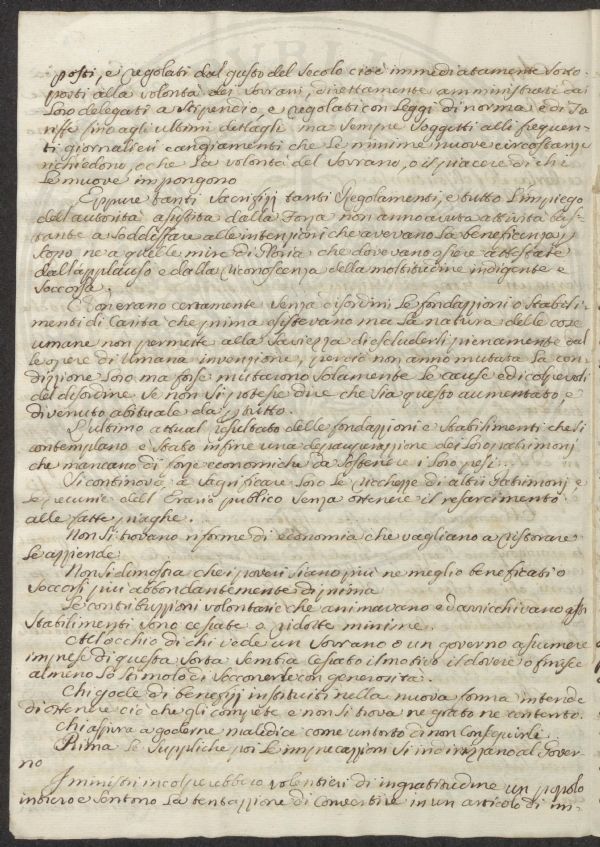 posti, e regolati dal gusto del secolo cioè immediatamente sotto-
posti alla volontà dei sovrani, direttamente amministrati dai
loro delegati a stipendio, e regolati con leggi di norma e di Ta-
riffe sino agli ultimi dettagli ma sempre soggetti alli frequen-
ti giornalieri cangiamenti che le minime nuove circostanze
richiedono, o che la volontà del sovrano, o il piacere di chi
le muove impongono
Eppure tanti sacrifizj tanti Regolamenti, e tutto l'impiego
dell'autorità assistita dalla forza non anno avuta attività bas-
tante a soddisfare alle intenzioni che avevano la beneficenza p
scopo ne a quelle mire di Gloria, che dovevano essere attestate
dall'applauso e dalla riconoscenza della moltitudine indigente e
soccorsa.
Non erano certamente senza disordini le fondazzioni o stabili-
menti di Carità che prima esistevano ma la natura delle cose
umane non permette alla saviezza di escluderli pienamente dal
le opere di umana invenzione, perciò non anno mutata la con-
dizzione loro ma forse mutarono solamente le cause ed i colpevoli
del disordine se non si potesse dire che sia questo aumentato, e
divenuto abituale da p tutto.
L'ultimo attual risultato delle fondazzioni e stabilimenti che si
contemplano è stato infine una depauperazzione dei loro patrimonj
che mancano di forze economiche da sostenere i loro pesi.
Si continovò a sagrificare loro le ricchezze di altri Patrimonj e
le pecunie dell'Erario publico senza ottenere il resarcimento
alle fatte piaghe.
Non si trovano riforme di economia che vagliano a ristorare
le aziende
Non si dimostra che i poveri siano più ne meglio beneficati o
soccorsi più abbondantemente di prima
Le contribuzzioni volontarie che animavano ed arricchivano gli
stabilimenti sono cessate o ridotte minime.
All'occhio di chi vede un sovrano o un governo assumere
imprese di questa sorta sembra cessato il motivo il dovere o finisce
almeno lo stimolo di soccorrerle con generosità.
Chi gode di benefizj instituiti nella nuova forma intende
di ottenere ciò che gli compete e non si trova ne grato ne contento.
Chi aspira a goderne maledice come un torto di non conseguirli.
Prima le suppliche poi le imprecazzioni si indirizzano al Gover-
no
I ministri incolperebbero volentieri di ingratitudine un popolo
intiero e sentono la tentazzione di convertire in un articolo di im-